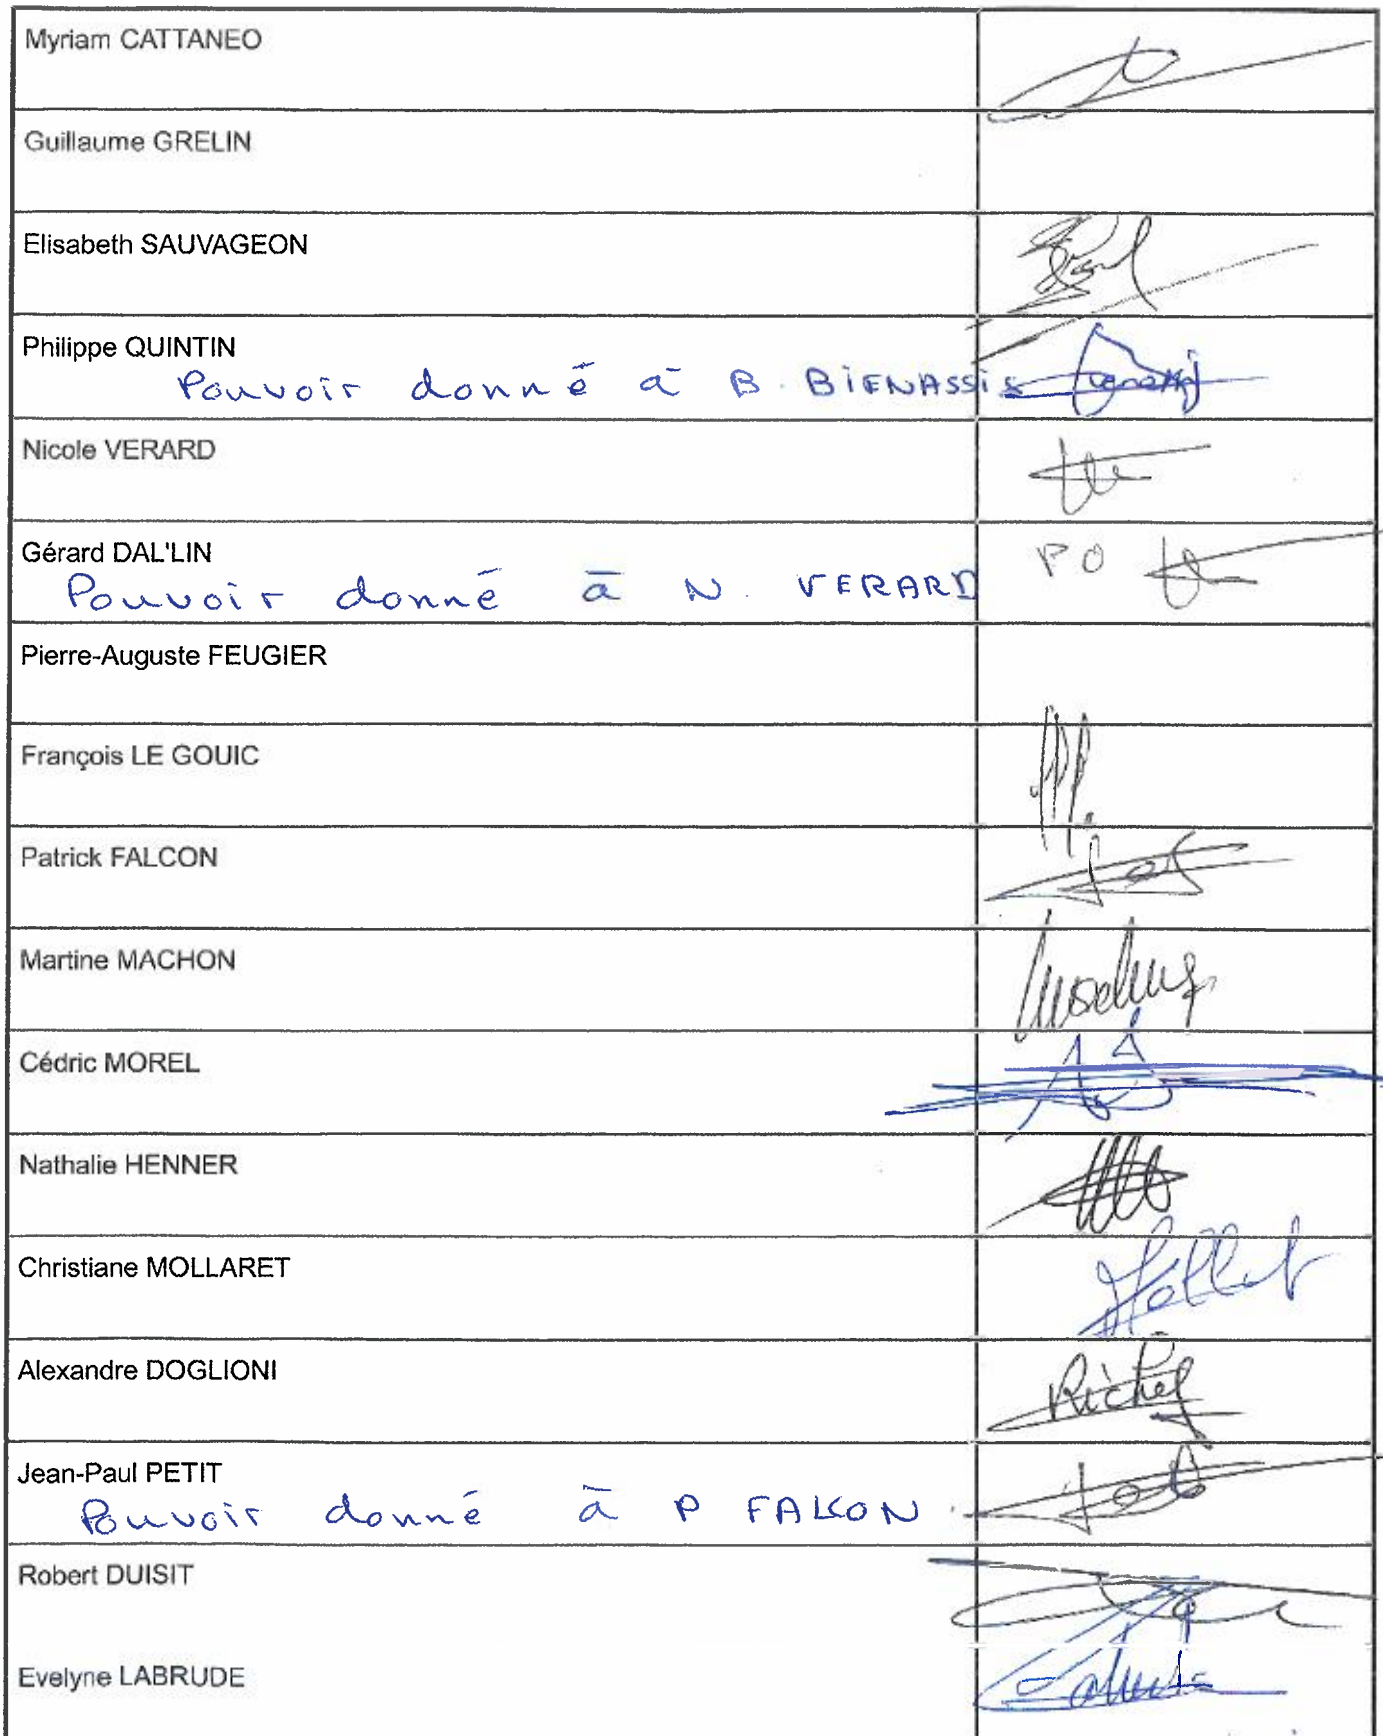 Myriam CATTANEO
Guillaume GRELIN
Elisabeth SAUVAGEON
Philippe QUINTIN
Pouvoir donné à B. BIENASSIS
Nicole VERARD
Gérard DAL'LIN
PO
Pouvoir donné à N. VERARD
Pierre-Auguste FEUGIER
François LE GOUIC
Patrick FALCON
Martine MACHON
Cédric MOREL
Nathalie HENNER
Christiane MOLLARET
Alexandre DOGLIONI
Richel
Jean-Paul PETIT
Pouvoir donné à P FALCON
Robert DUISIT
Evelyne LABRUDE